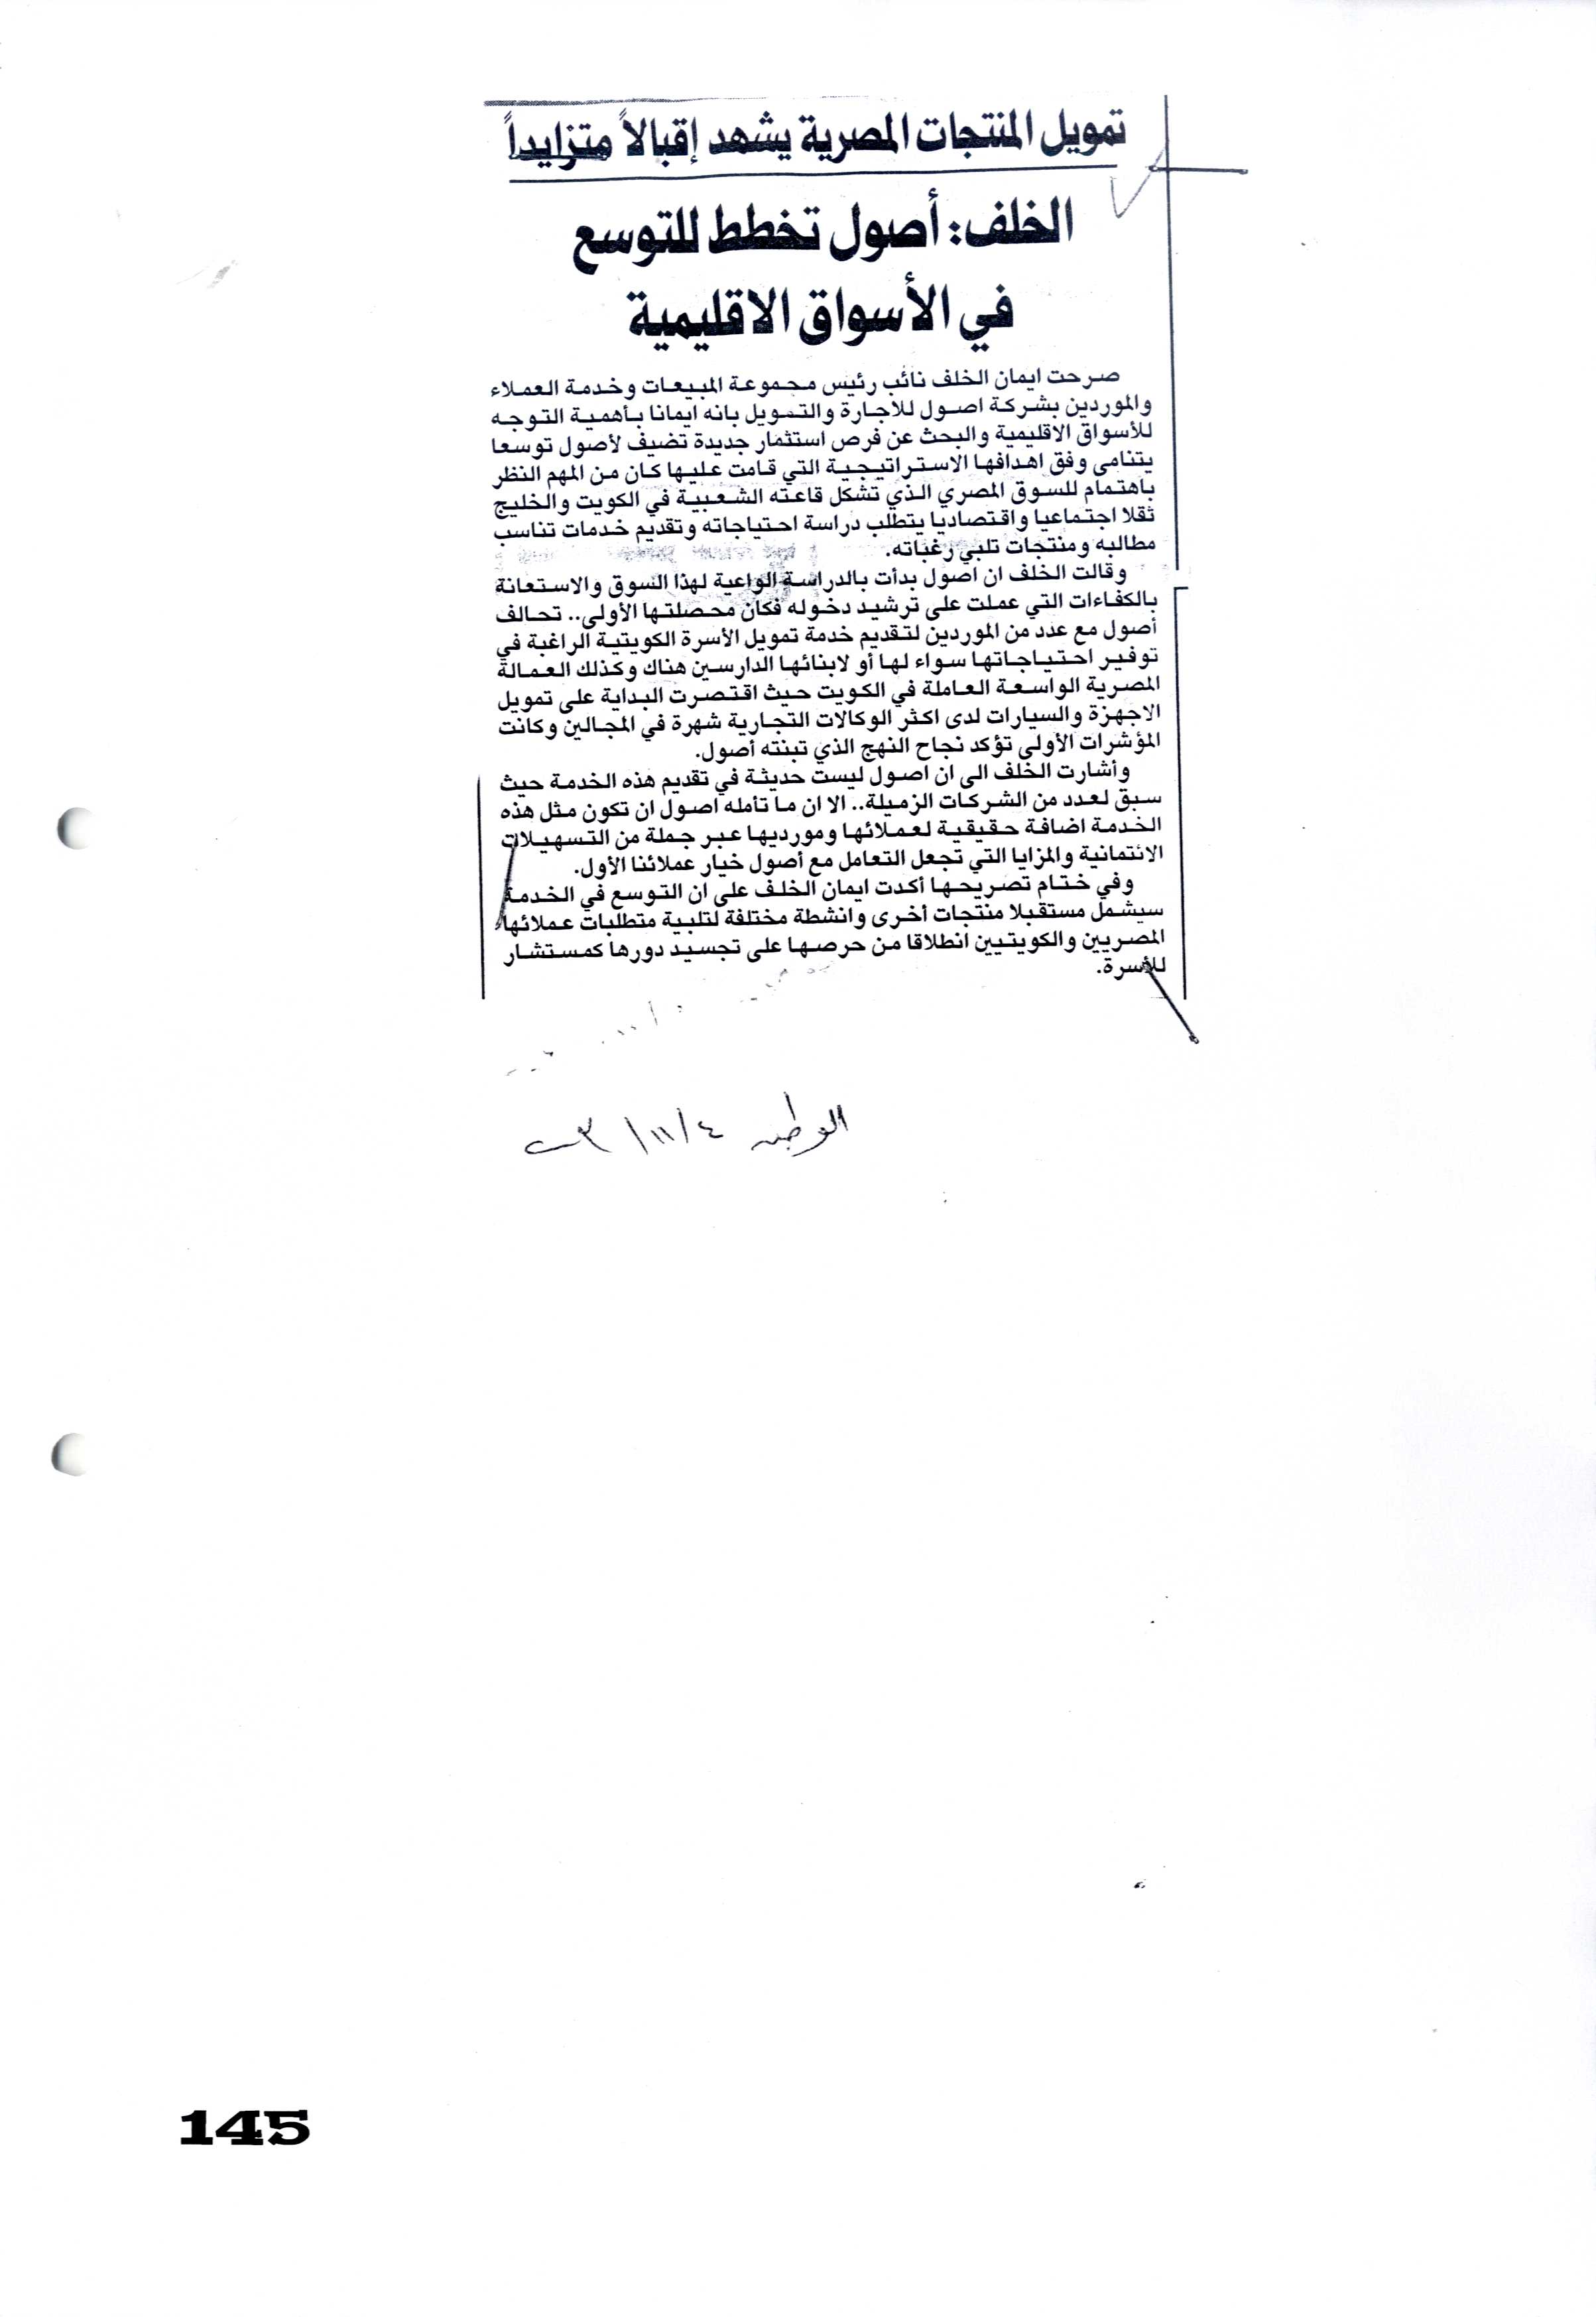 تمويل المنتجات المصرية يشهد إقبالاً متزايداً
الخلف: أصول تخطط للتوسع
في الأسواق الاقليمية
صرحت ايمان الخلف نائب رئيس مجموعة المبيعات وخدمة العملاء
والموردين بشركة اصول للاجارة والتمويل بانه ايمانا بأهمية التوجه
للأسواق الاقليمية والبحث عن فرص استثمار جديدة تضيف لأصول توسعا
يتنامى وفق اهدافها الاستراتيجية التي قامت عليها كان من المهم النظر
باهتمام للسوق المصري الذي تشكل قاعته الشعبية في الكويت والخليج
ثقلا اجتماعيا واقتصاديا يتطلب دراسة احتياجاته وتقديم خدمات تناسب
مطالبه ومنتجات تلبي رغباته.
وقالت الخلف ان اصول بدأت بالدراسة الواعية لهذا السوق والاستعانة
بالكفاءات التي عملت على ترشيد دخوله فكان محصلتها الأولى.. تحالف
أصول مع عدد من الموردين لتقديم خدمة تمويل الأسرة الكويتية الراغبة في
توفير احتياجاتها سواء لها أو لابنائها الدارسين هناك وكذلك العمالة
المصرية الواسعة العاملة في الكويت حيث اقتصرت البداية على تمويل
الاجهزة والسيارات لدى اكثر الوكالات التجارية شهرة في المجالين وكانت
المؤشرات الأولى تؤكد نجاح النهج الذي تبنته أصول.
وأشارت الخلف الى ان اصول ليست حديثة في تقديم هذه الخدمة حيث
سبق لعدد من الشركات الزميلة.. الا ان ما تأمله اصول ان تكون مثل هذه
الخدمة اضافة حقيقية لعملائها ومورديها عبر جملة من التسهيلات
الائتمانية والمزايا التي تجعل التعامل مع أصول خيار عملائنا الأول.
وفي ختام تصريحها أكدت ايمان الخلف على ان التوسع في الخدمة
سيشمل مستقبلا منتجات أخرى وانشطة مختلفة لتلبية متطلبات عملائها
المصريين والكويتيين انطلاقا من حرصها على تجسيد دورها كمستشار
للأسرة.
الوطن ٤/١١/
145